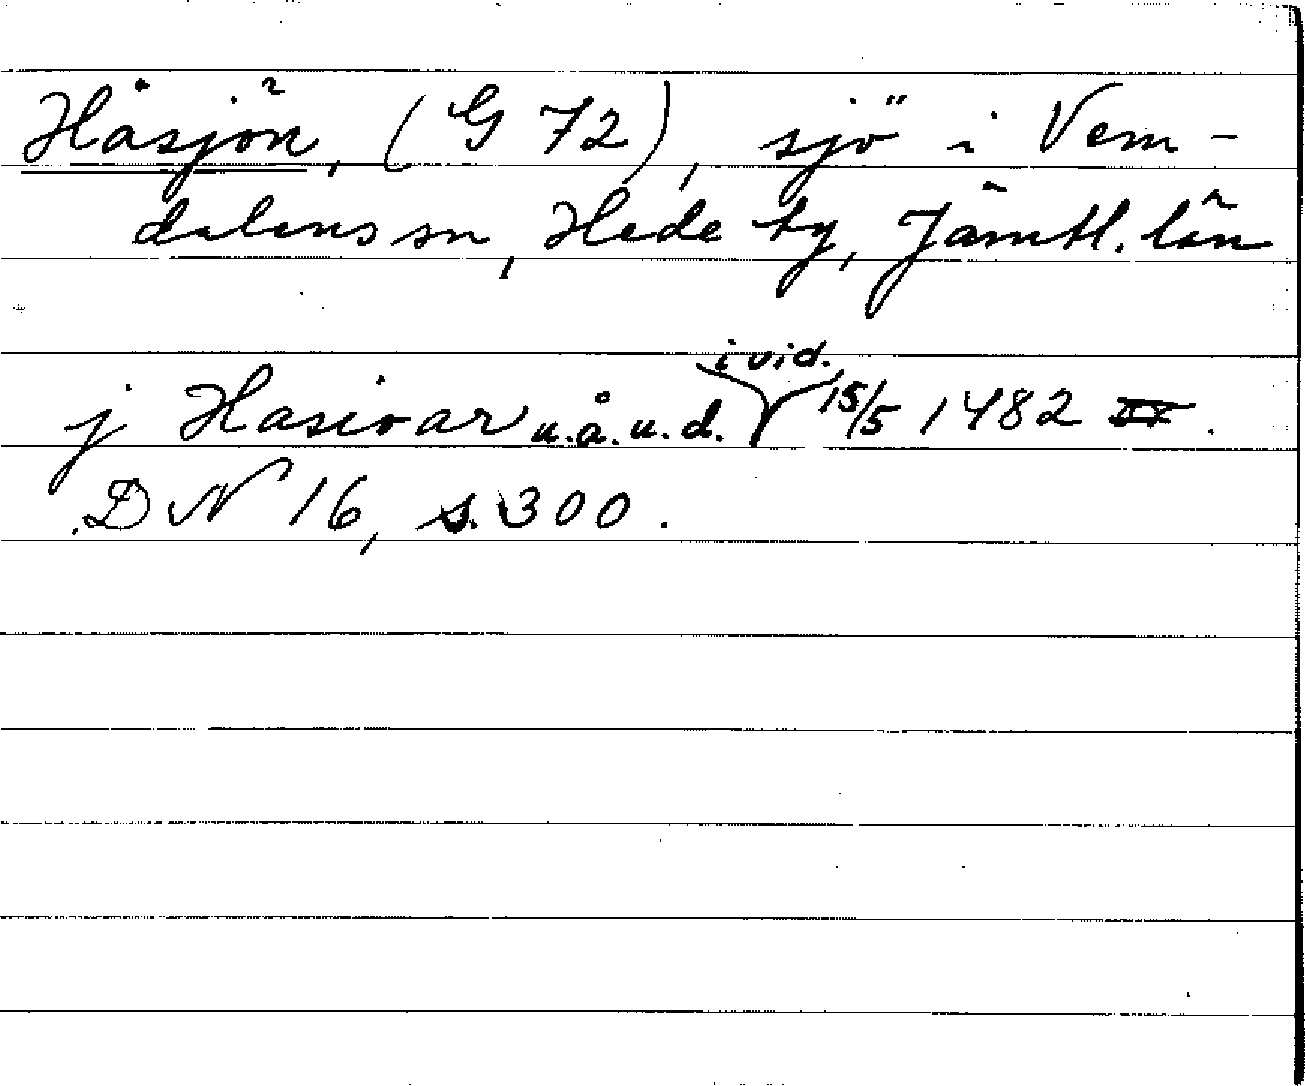 Håsjön, (G 72), sjö i Vem-
dalens sn, Hede tg, Jämtl. län
j Hasioar u.å.u.d. i vid. 15/5 1482
DN 16, s. 300.